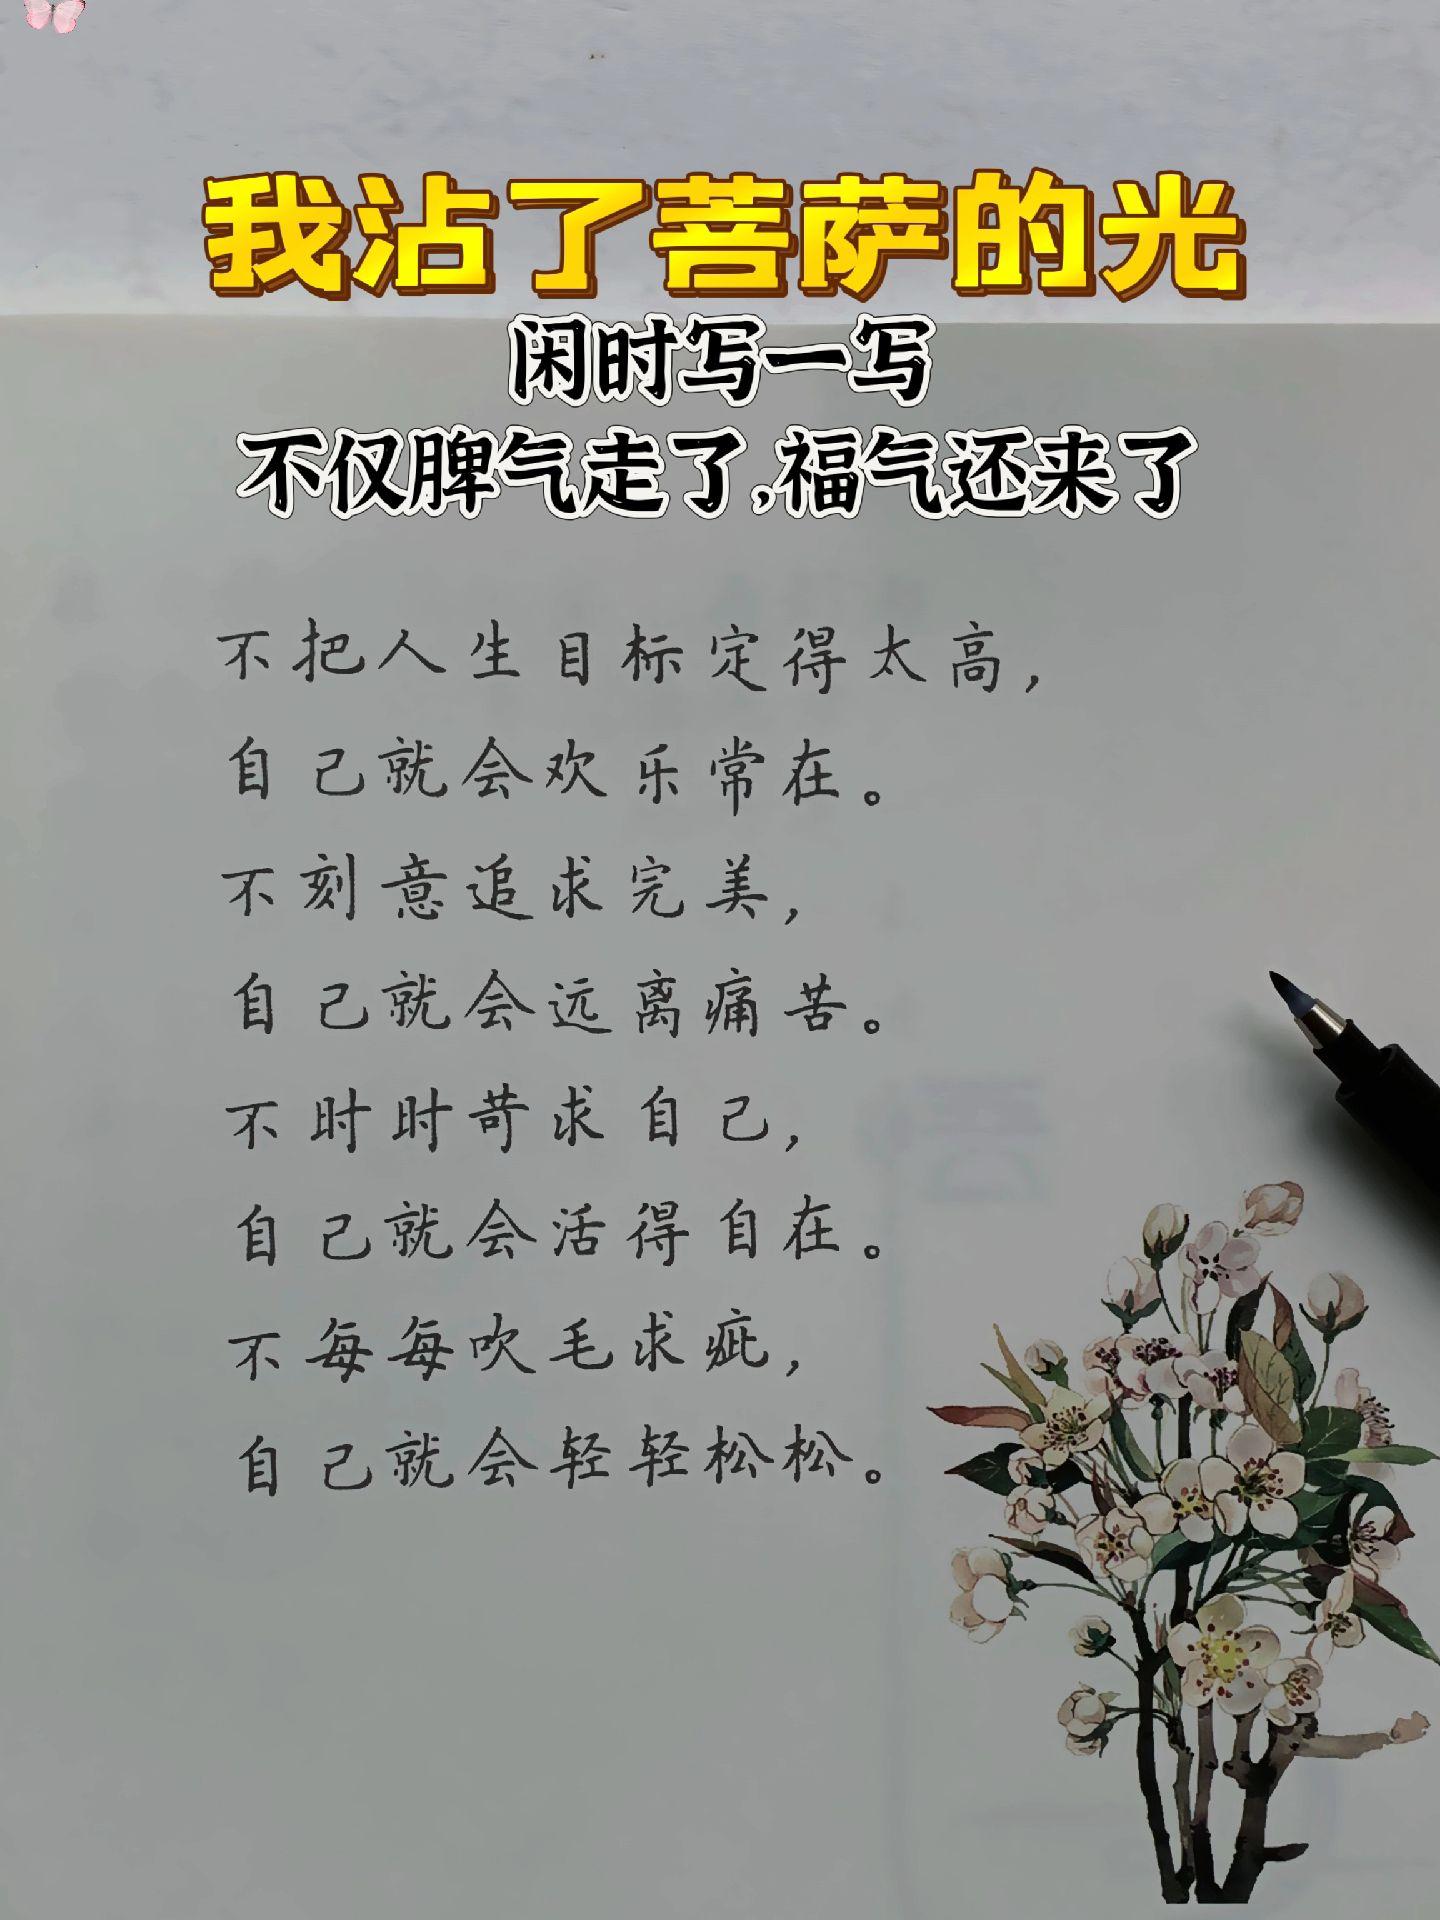 我沾了菩萨的光
闲时写一写
不仅脾气走了,福气还来了
不把人生目标定得太高,
自己就会欢乐常在。
不刻意追求完美,
自己就会远离痛苦。
不时时苛求自己,
自己就会活得自在。
不每每吹毛求疵,
自己就会轻轻松松。